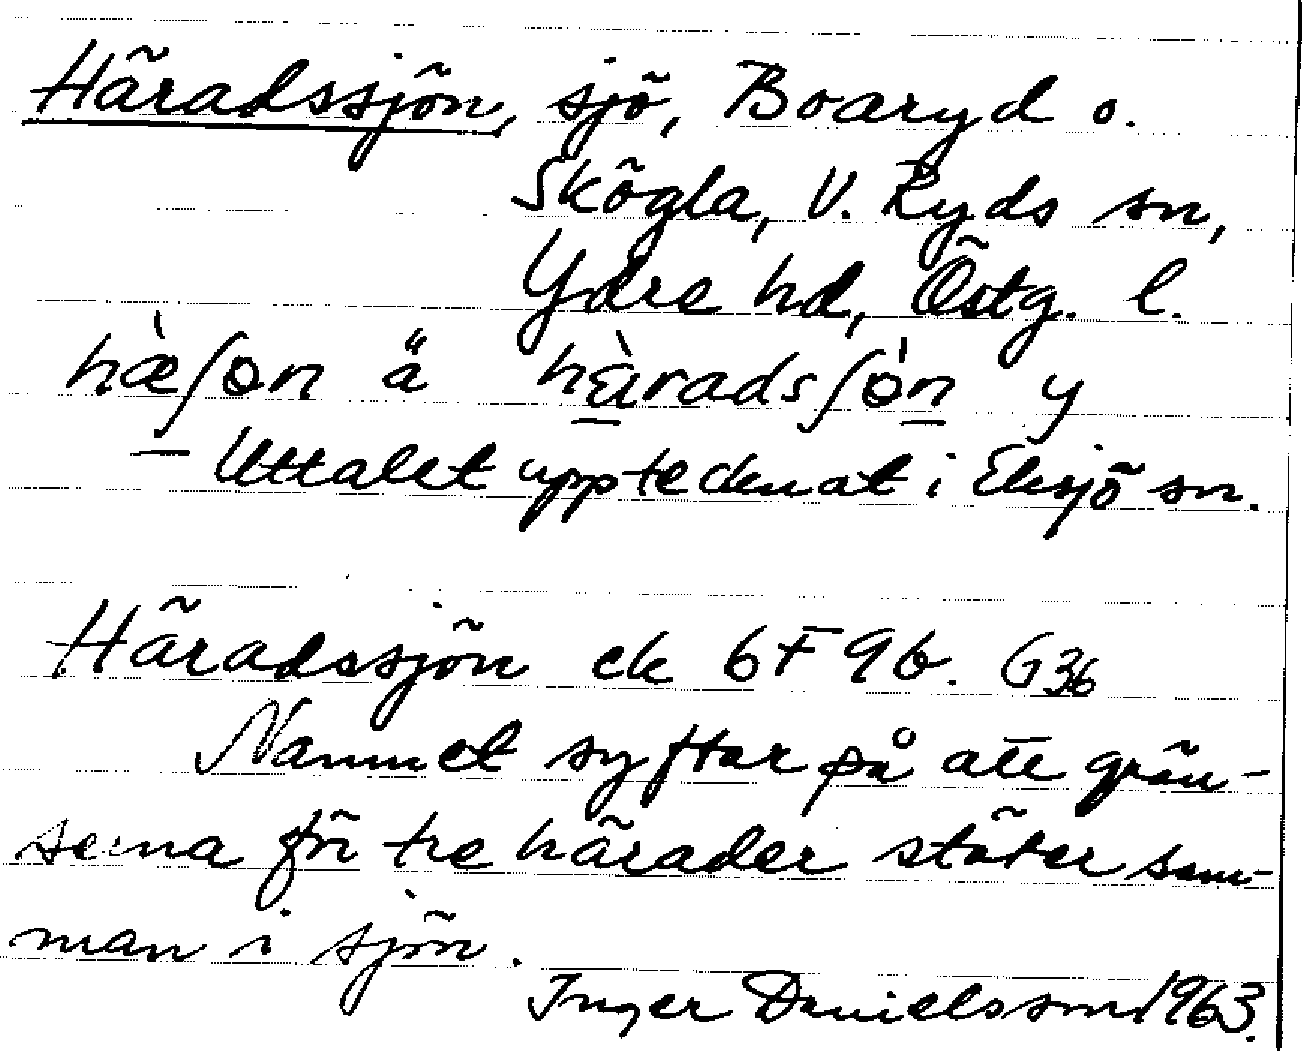 Häradssjön, sjö, Boaryd o.
Skögla, V. Ryds sn,
Ydre hd, Östg. l.
hæ̀ʃɵn ä hàradsʃɵ̀n y
– Uttalet upptecknat i Eksjö sn.
Häradssjön ek 6F9b. G36
Namnet syftar på att grän-
serna för tre härader stöter sam-
man i sjön.
Inger Danielsson 1963.